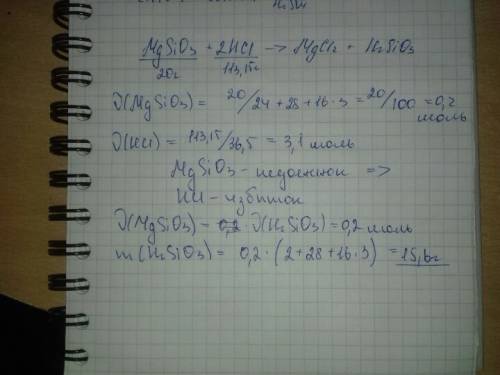 H₂SiO₃
MgSiO₃ + 2HCl -> MgCl₂ + H₂SiO₃
20г 113,15г
ν(MgSiO₃) = 20/24+28+16·3 = 20/100 = 0,2
моль
ν(HCl) = 113,15/36,5 = 3,1 моль
MgSiO₃ - недостаток =>
HCl - избыток
ν(MgSiO₃) = ν(H₂SiO₃) = 0,2 моль
m(H₂SiO₃) = 0,2 · (2+28+16·3) = 15,6г